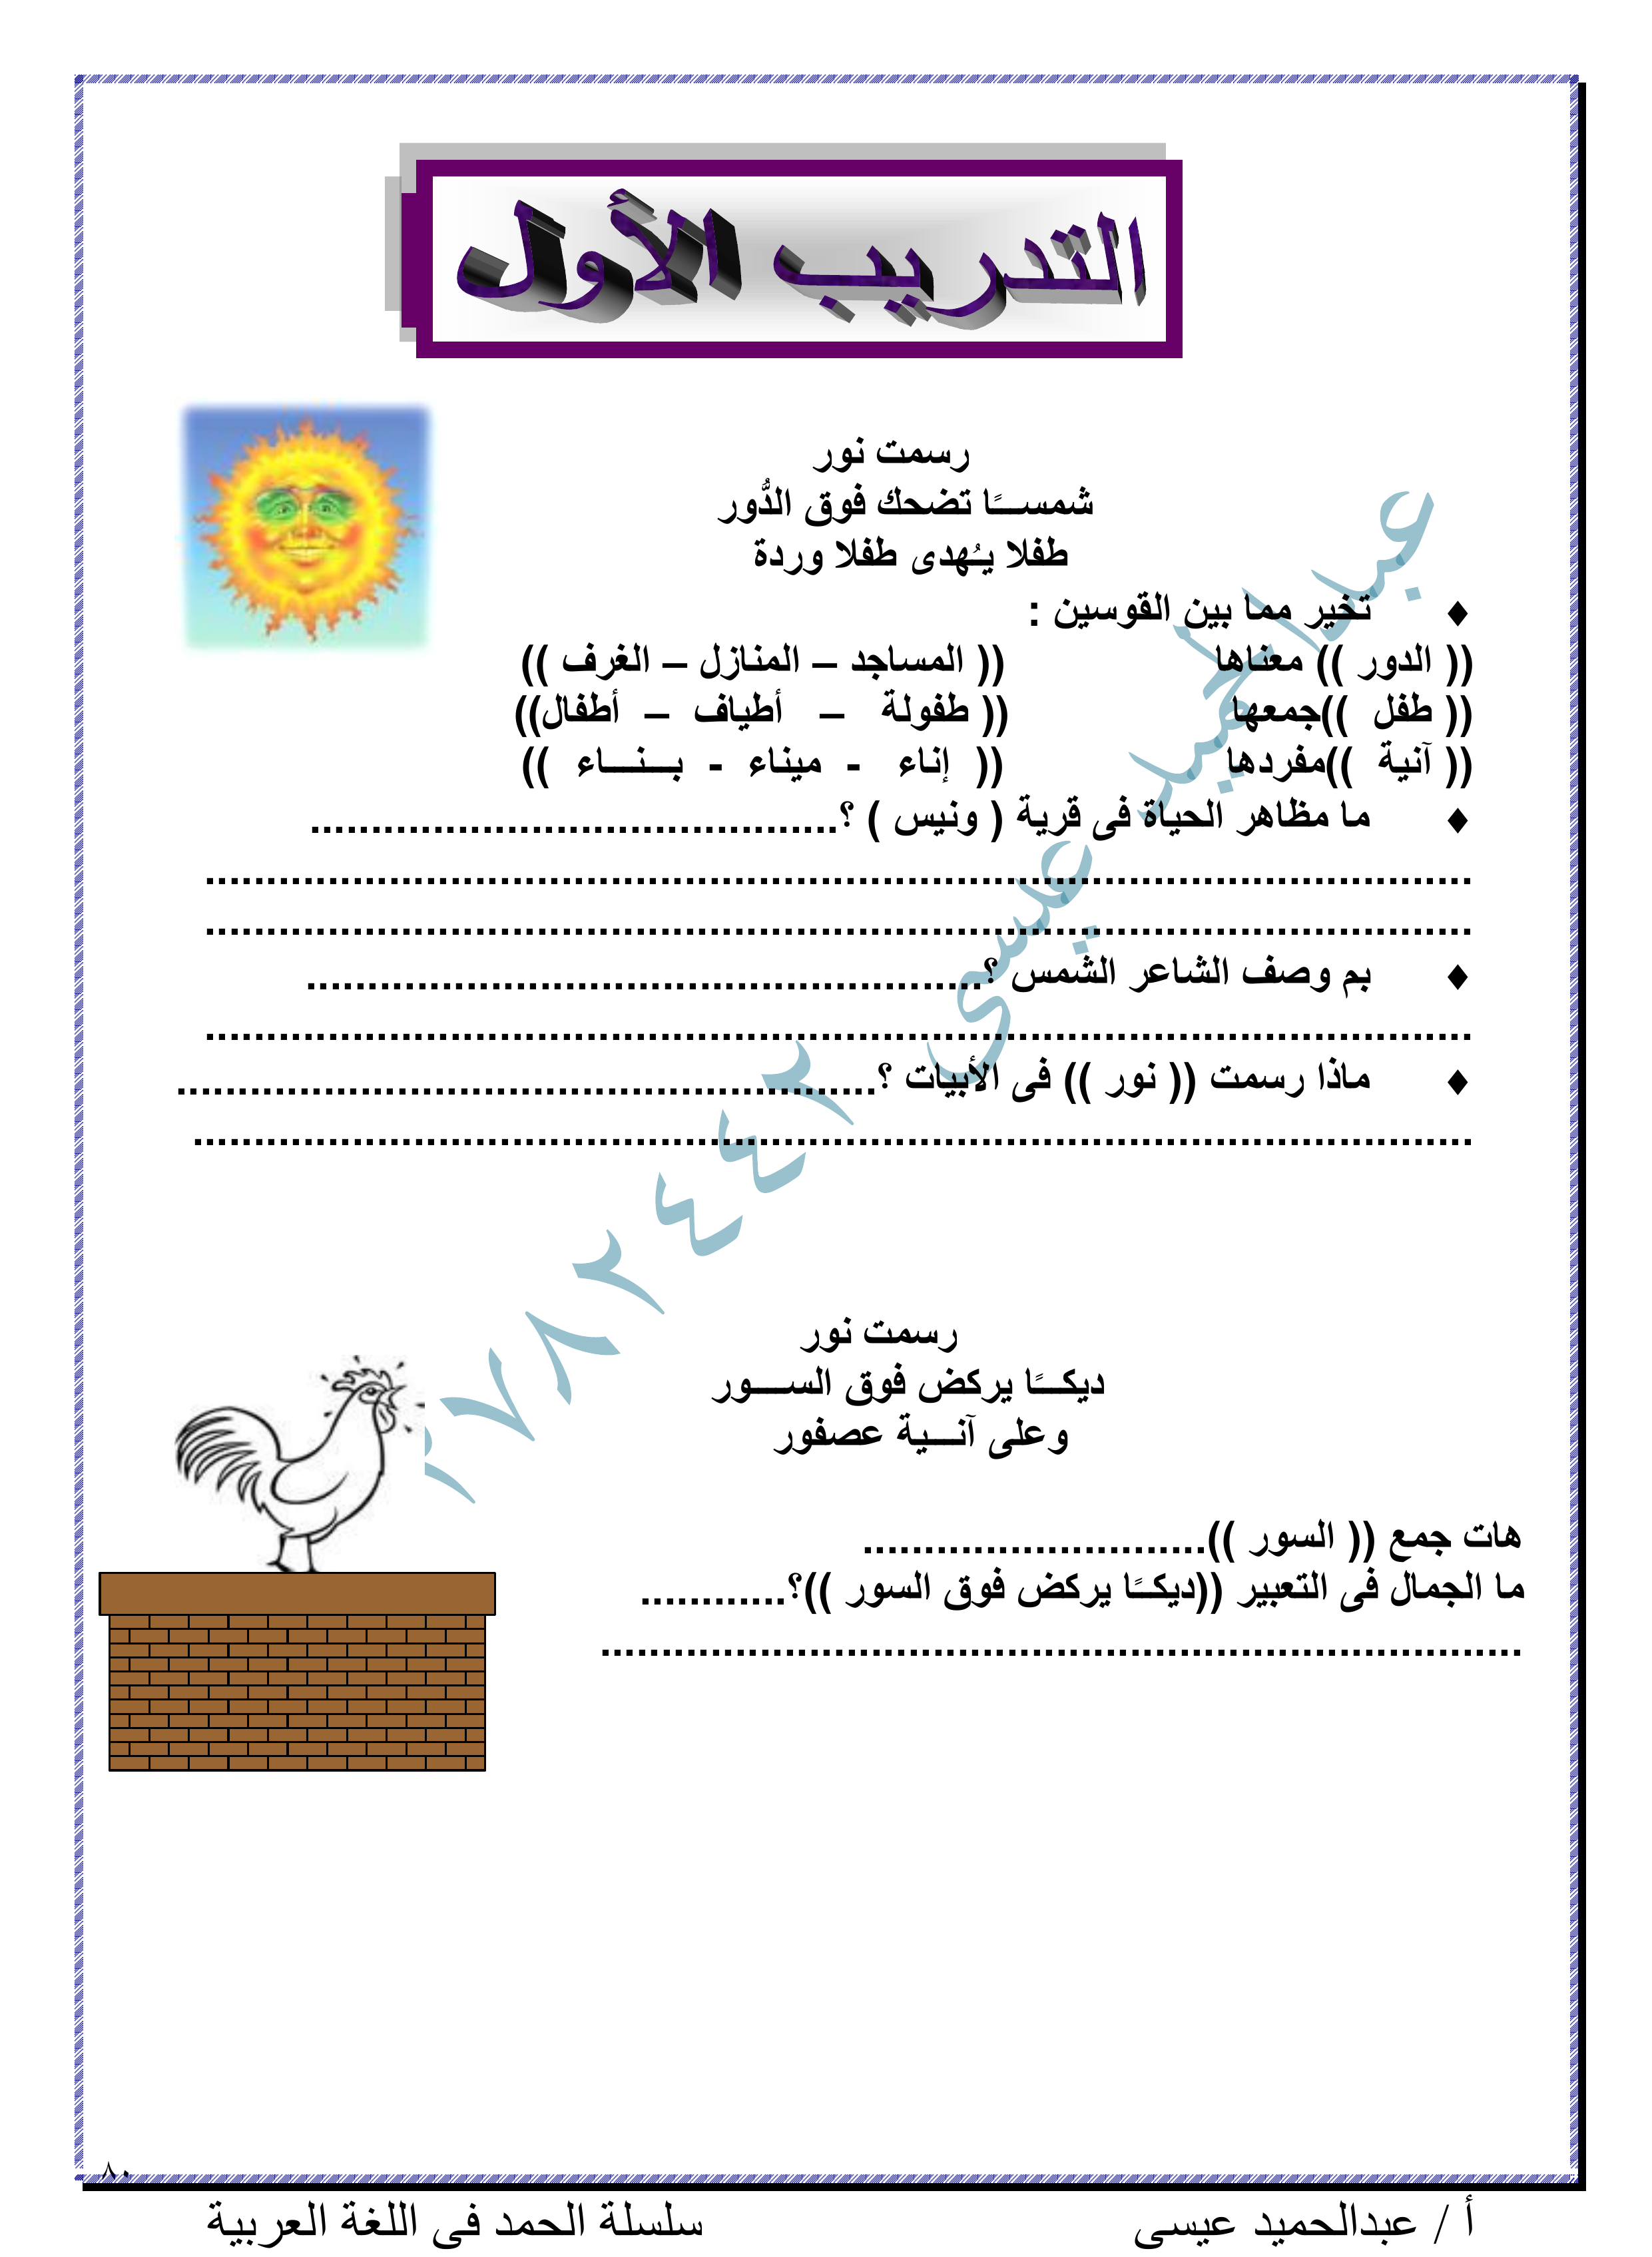 التدريب الأول
رسمت نور
شمســًا تضحك فوق الدُّور
طفلا يـُهدى طفلا وردة
♦ تخير مما بين القوسين :
(( الدور )) معناها (( المساجد – المنازل – الغرف ))
(( طفل ))جمعها (( طفولة – أطياف – أطفال))
(( آنية ))مفردها (( إناء - ميناء - بـــنـــاء ))
♦ ما مظاهر الحياة فى قرية ( ونيس ) ؟...........................................
.......................................................................................................
.......................................................................................................
♦ بم وصف الشاعر الشمس ؟.......................................................
.......................................................................................................
♦ ماذا رسمت (( نور )) فى الأبيات ؟.........................................................
........................................................................................................
رسمت نور
ديكـــًا يركض فوق الســـور
وعلى آنـــية عصفور
هات جمع (( السور ))............................
ما الجمال فى التعبير ((ديكــًا يركض فوق السور ))؟............
...........................................................................
عبدالحميد عيسى
٨٠
أ / عبدالحميد عيسى سلسلة الحمد فى اللغة العربية